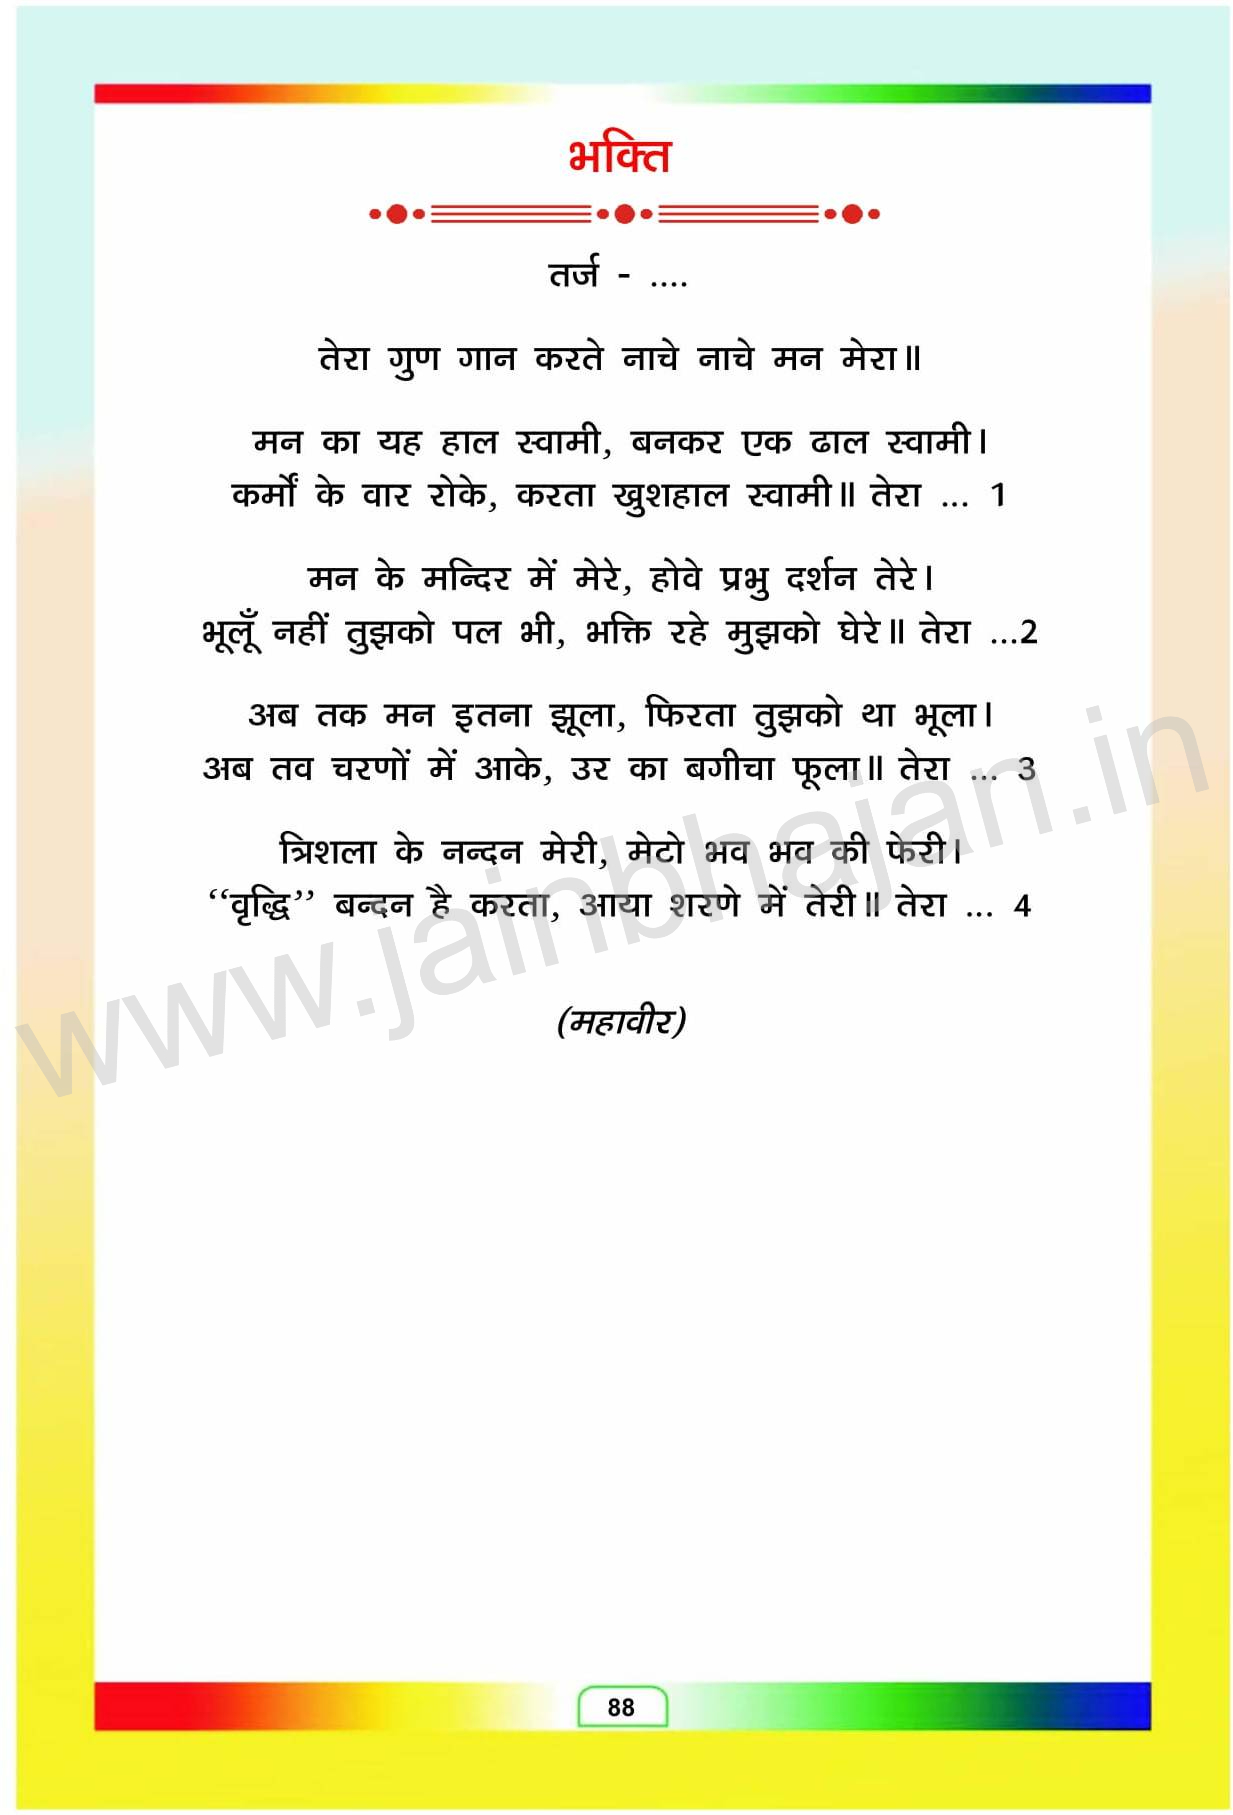 भक्ति
तर्ज - ....
तेरा गुण गान करते नाचे नाचे मन मेरा॥
मन का यह हाल स्वामी, बनकर एक ढाल स्वामी।
कर्मों के वार रोके, करता खुशहाल स्वामी॥ तेरा ... 1
मन के मन्दिर में मेरे, होवे प्रभु दर्शन तेरे।
भूलूँ नहीं तुझको पल भी, भक्ति रहे मुझको घेरे॥ तेरा ...2
अब तक मन इतना झूला, फिरता तुझको था भूला।
अब तव चरणों में आके, उर का बगीचा फूला॥ तेरा ... 3
त्रिशला के नन्दन मेरी, मेटो भव भव की फेरी।
“वृद्धि” बन्दन है करता, आया शरणे में तेरी॥ तेरा ... 4
(महावीर)
www.jainbhajan.in
88